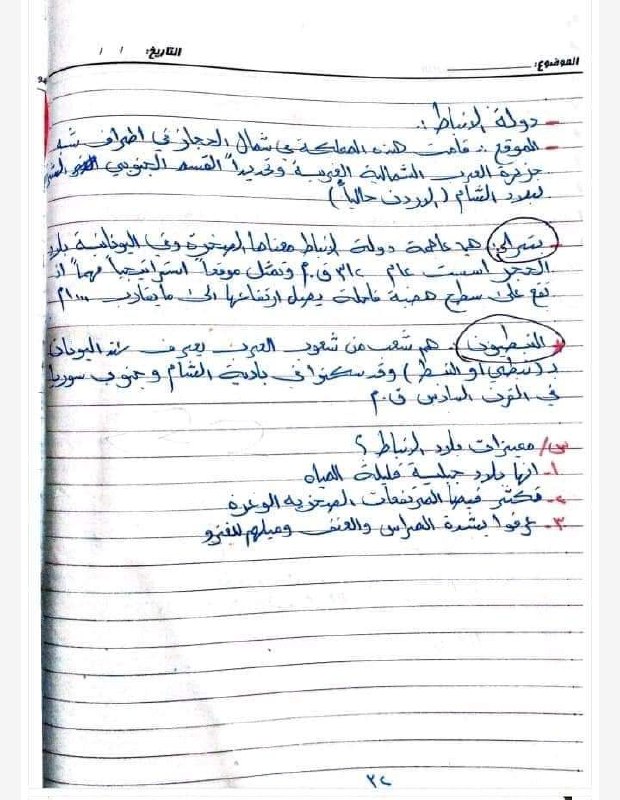 الموضوع: التاريخ: / /
- دولة الانباط :.
- الموقع :. قامت هذه المملكة في شمال الحجاز في اطراف شبه
جزيرة العرب الشمالية الغربية وتحديداً القسم الجنوبي
لبلاد الشام (الاردن حالياً)
- هي عاصمة دولة الانباط معناها الصخرة وفي اليونانية بلاد
الحجر اسست عام ٣١٢ ق.م وتمثل موقعاً استراتيجياً مهماً اذ
تقع على سطح هضبة قاحلة يصل ارتفاعها الى ما يقارب ١٠٠٠م
* النبطيون. هم شعب من شعوب العرب يعرف عند اليونان
بـ (نبطي او النبط) وقد سكنوا في بادية الشام وجنوب سوريا
في القرن السادس ق.م
س/ مميزات بلاد الانباط ؟
١- انها بلاد جبلية قليلة المياه
٢- فكثر فيها المرتفعات الصخرية الوعرة
٣- عرفوا بشدة المراس والعنف وميلهم للغزو
٣٢